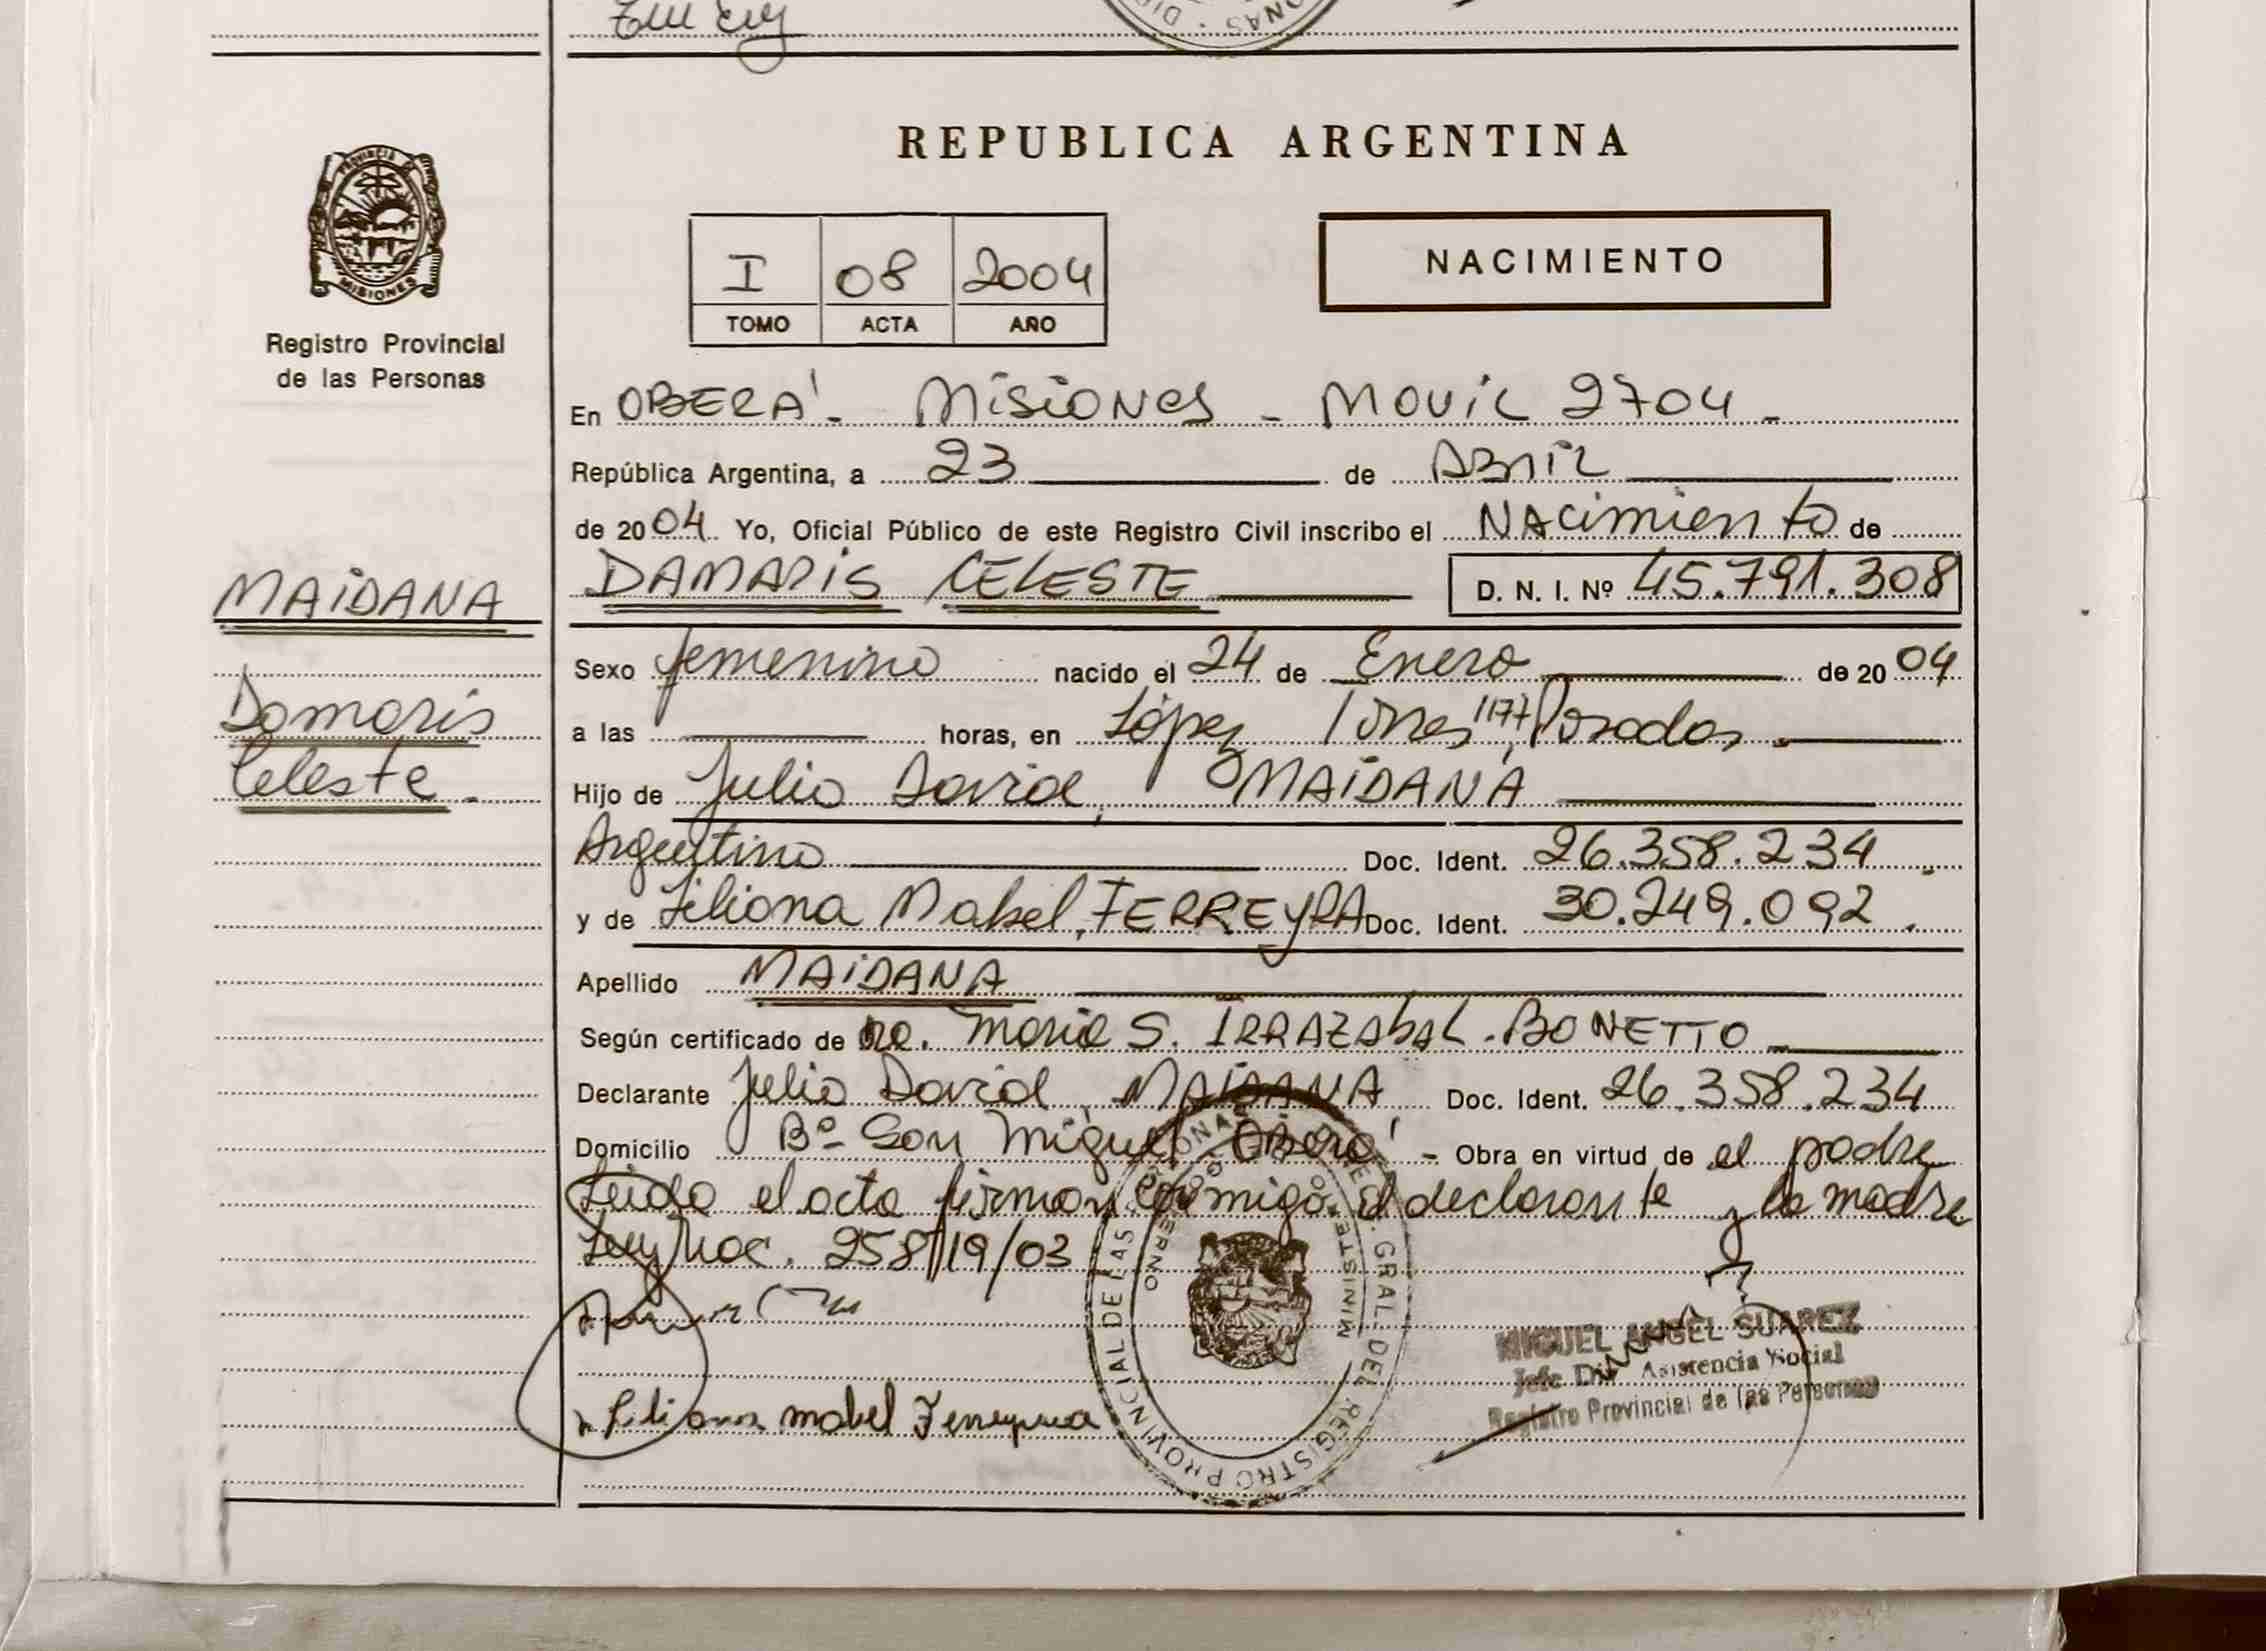 REPUBLICA ARGENTINA
PROVINCIA DE
MISIONES
Registro Provincial
de las Personas
I 08 2004
TOMO ACTA AÑO
NACIMIENTO
En OBERA' - Misiones - Movil 2704 -
República Argentina, a 23 de Abril
de 2004 Yo, Oficial Público de este Registro Civil inscribo el Nacimiento de
MAIDANA
Damaris
Celeste -
DAMARIS CELESTE D. N. I. Nº 45.791.308
Sexo femenino nacido el 24 de Enero de 2004
a las horas, en López Torres 1177, Posadas
Hijo de Julio David, MAIDANA
Argentino Doc. Ident. 26.358.234
y de Liliana Mabel, FERREYRA Doc. Ident. 30.249.092
Apellido MAIDANA
Según certificado de Dra. Maria S. IRRAZABAL - BONETTO
Declarante Julio David MAIDANA Doc. Ident. 26.358.234
Domicilio Bº San Miguel Oberá - Obra en virtud de el padre
Leida el acta firman conmigo el declarante y la madre
Ley Nac. 25819/03
Liliana mabel Ferreyra
MIGUEL ANGEL SUAREZ
Jefe Div. Asistencia Social
Registro Provincial de las Personas
GRAL. DEL REGISTRO PROVINCIAL DE LAS
MINISTE GOBIERNO